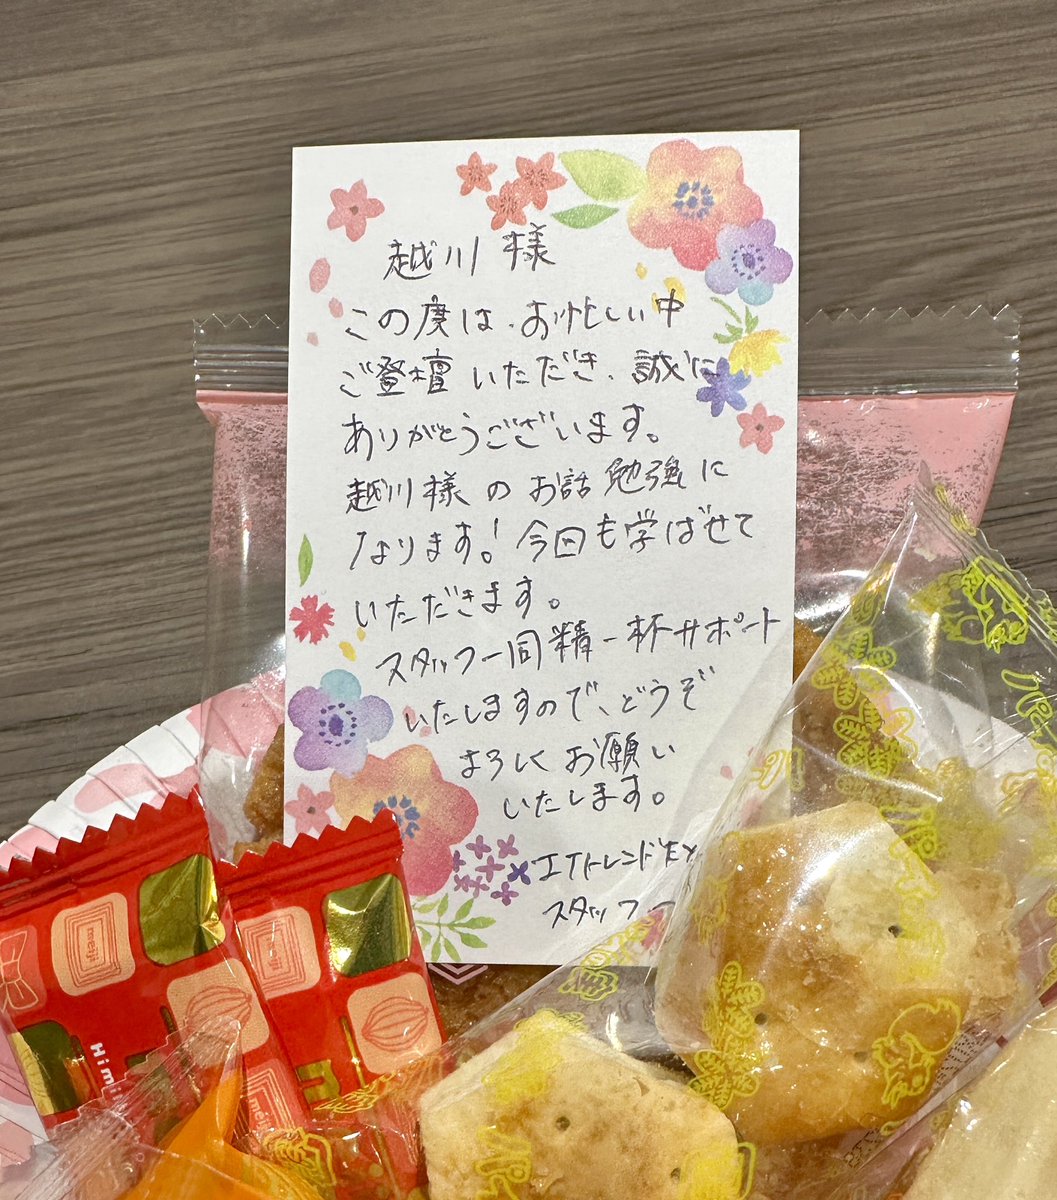 越川 様
この度は、お忙しい中
ご登壇いただき、誠に
ありがとうございます。
越川様のお話勉強に
なります！今回も学ばせて
いただきます。
スタッフ一同精一杯サポート
いたしますので、どうぞ
よろしくお願い
いたします。
ITトレンドEX
スタッフ一
meiji
meiji
Himi
m